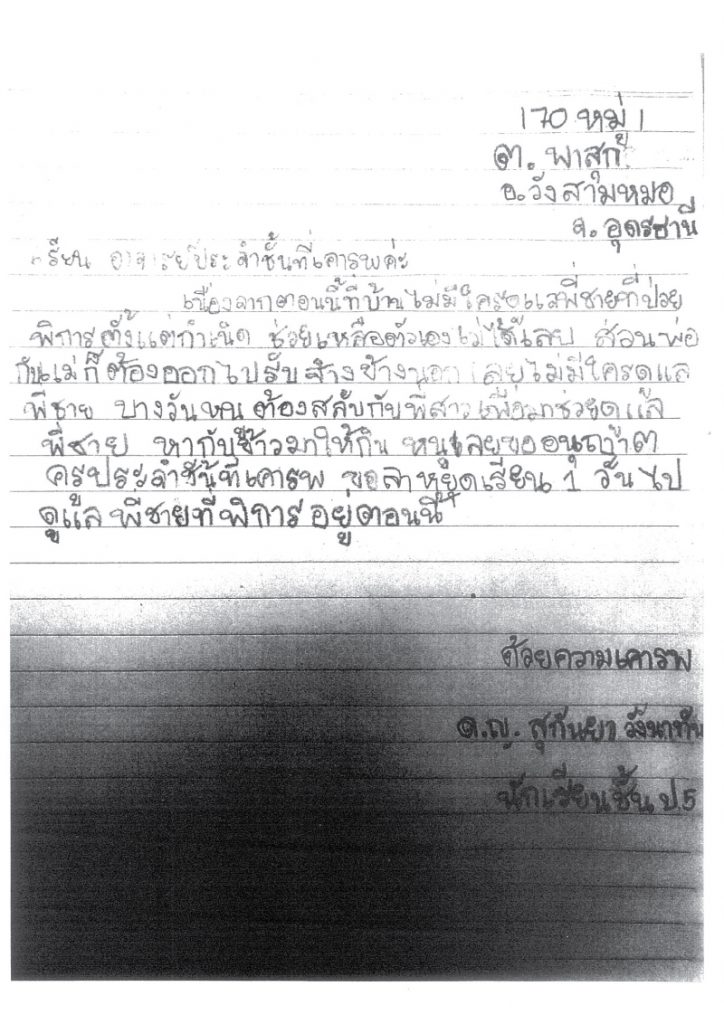 170 หมู่ 1
ต. ผาสุก
อ. วังสามหมอ
จ. อุดรธานี
เรียน อาจารย์ประจำชั้นที่เคารพค่ะ
เนื่องจากตอนนี้ที่บ้านไม่มีใครดูแลพี่ชายที่ป่วย
พิการตั้งแต่กำเนิด ช่วยเหลือตัวเองไม่ได้เลย ส่วนพ่อ
กับแม่ก็ต้องออกไปรับจ้างข้างนอก เลยไม่มีใครดูแล
พี่ชาย บางวันหนูต้องสลับกับพี่สาวเพื่อมาช่วยดูแล
พี่ชาย หากับข้าวมาให้กิน หนูเลยขออนุญาต
ครูประจำชั้นที่เคารพ ขอลาหยุดเรียน 1 วันไป
ดูแลพี่ชายที่พิการอยู่ตอนนี้
ด้วยความเคารพ
ด.ญ. สุกันยา วังนาทัน
นักเรียนชั้น ป.5